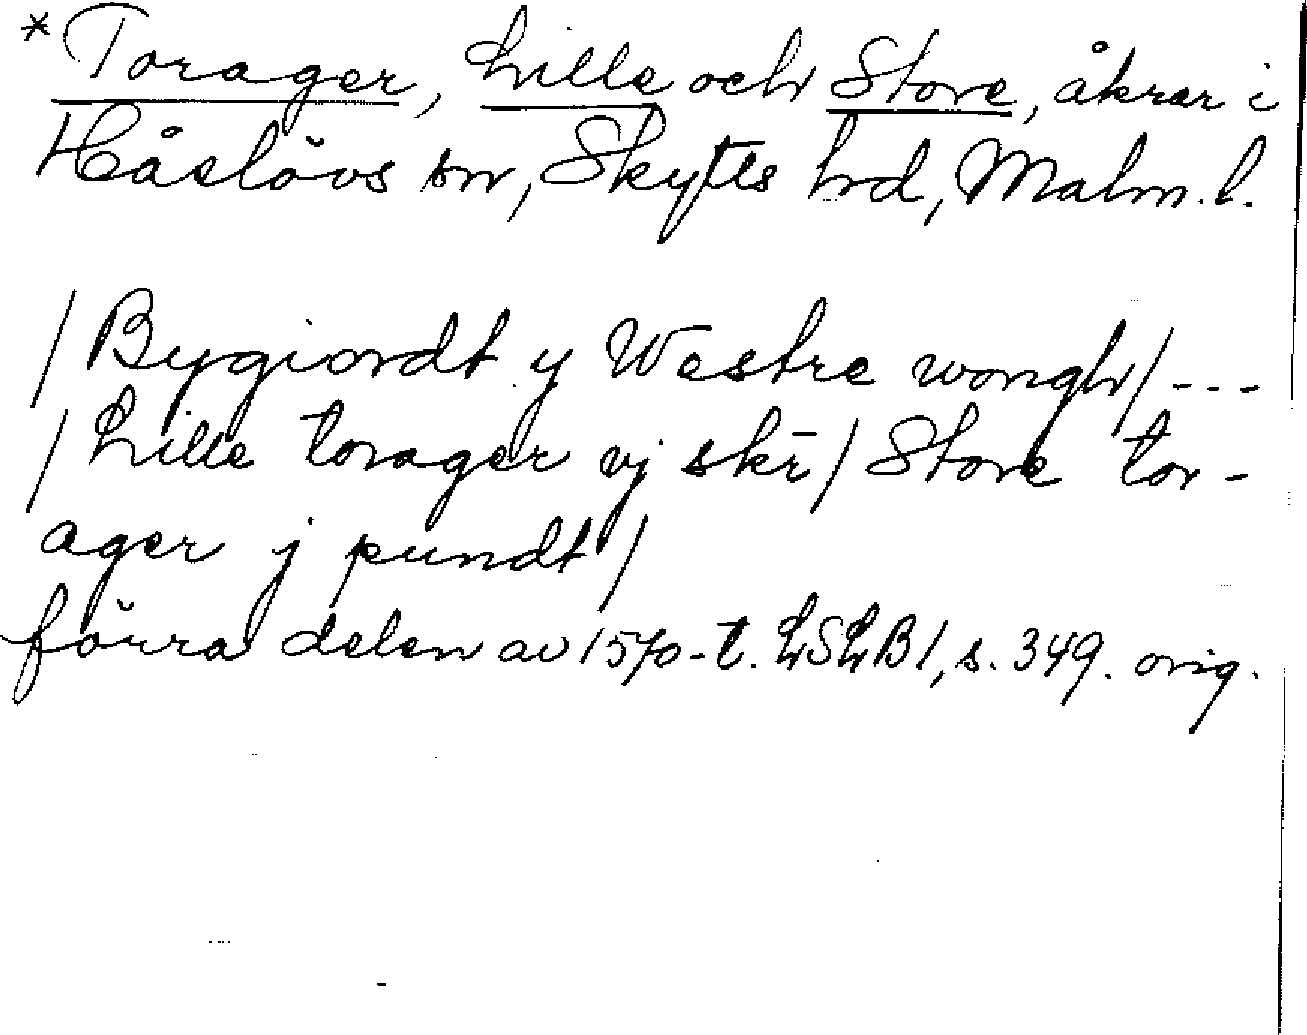 *Torager, Lille och Store, åkrar i
Håslövs sn, Skytts hd, Malm. l.
/ Bygiordt y Westre wongh / ---
/ Lille torager vj skr̄ / Store tor-
ager j pundt /
förra delen av 1570-t. LSLB 1, s. 349. orig.